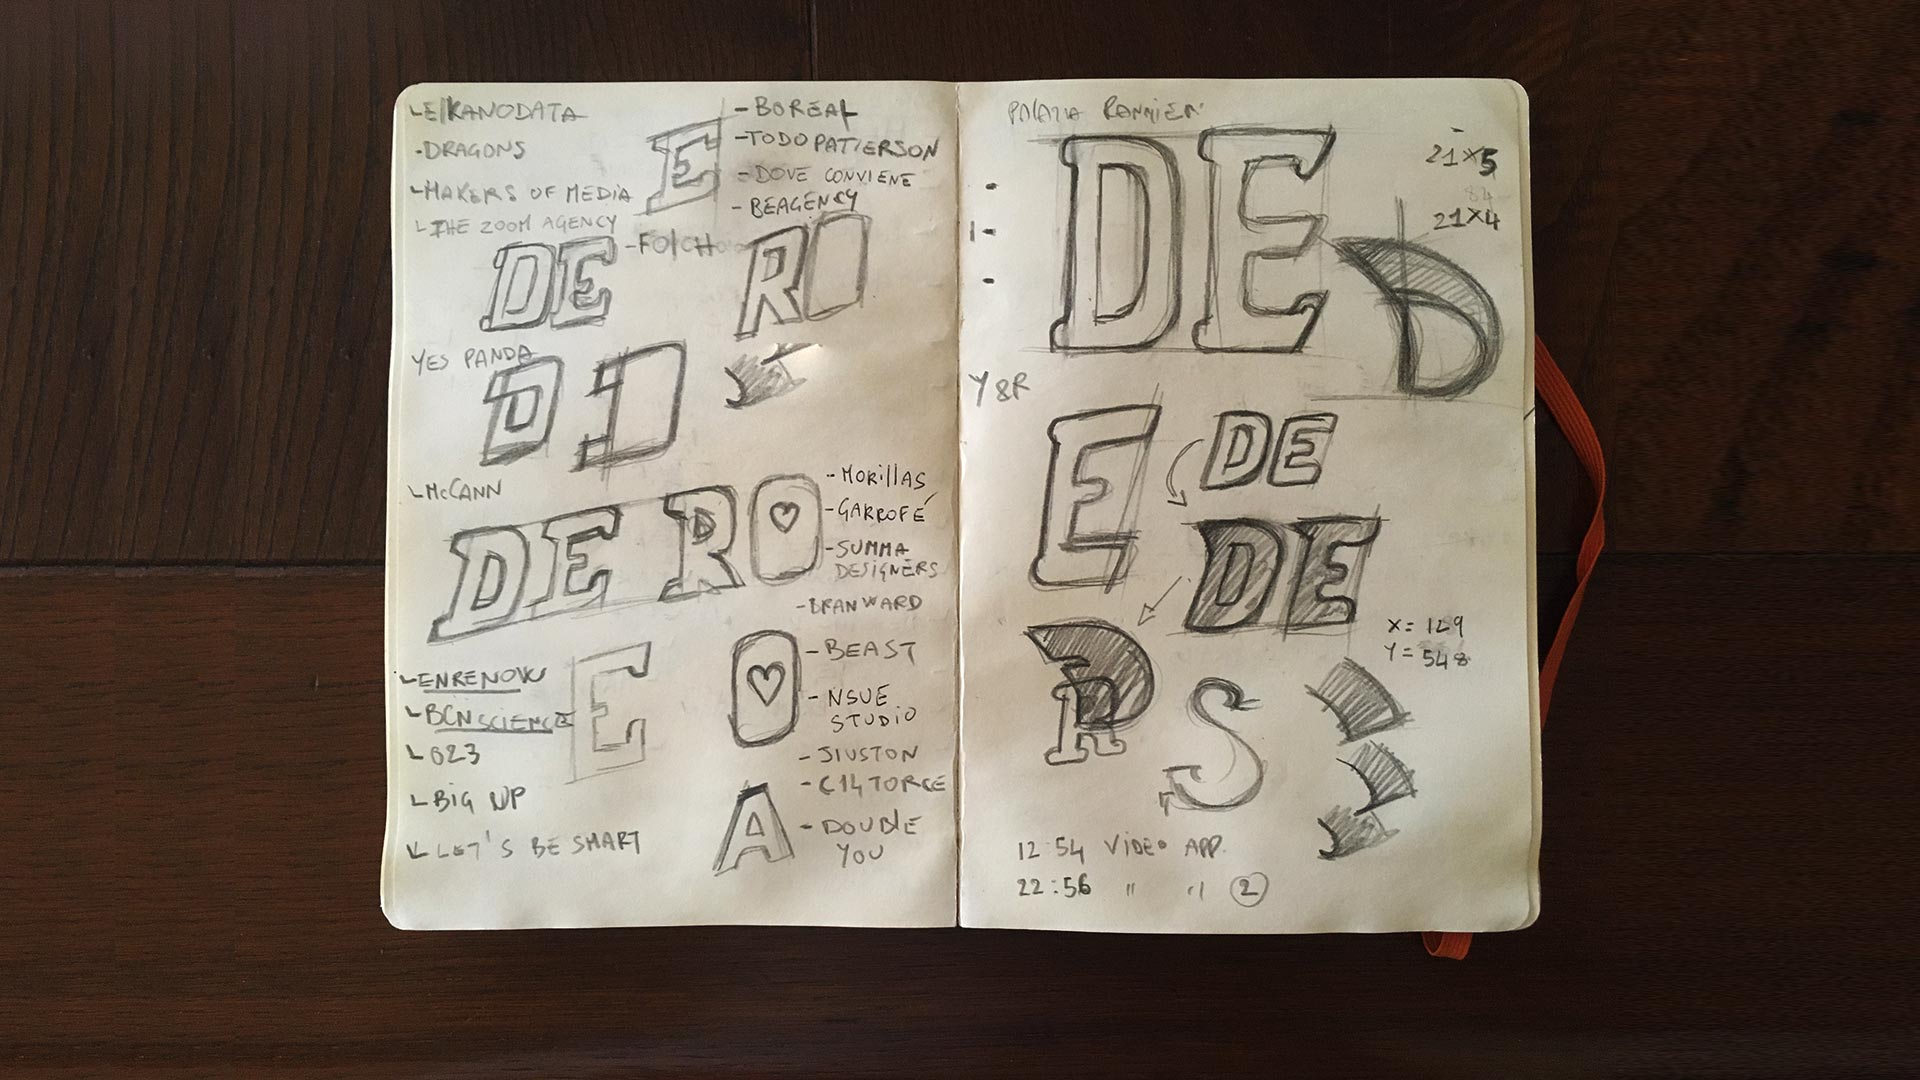 DRAGONS
MAKERS OF MEDIA
THE ZOOM AGENCY
E
- BOREAL
- TODO PATTERSON
- DOVE CONVIENE
- BEAGENCY
DE
R
YES PANDA
D
McCANN
DE RO
- MORillAS
- GARROFÉ
- SUMMA
DESIGNERS
- BRANWARD
BCNSCIENCE
023
BIG UP
LET'S BE SMART
E
- BEAST
- NSUE
STUDIO
- JIUSTON
- C14TORCE
- DOUBLE
YOU
A
DE
21X5
84
21X4
Y &R
E
DE
DE
X= 129
Y= 548
R
S
12:54 VIDEO APP.
22:56 " " 2